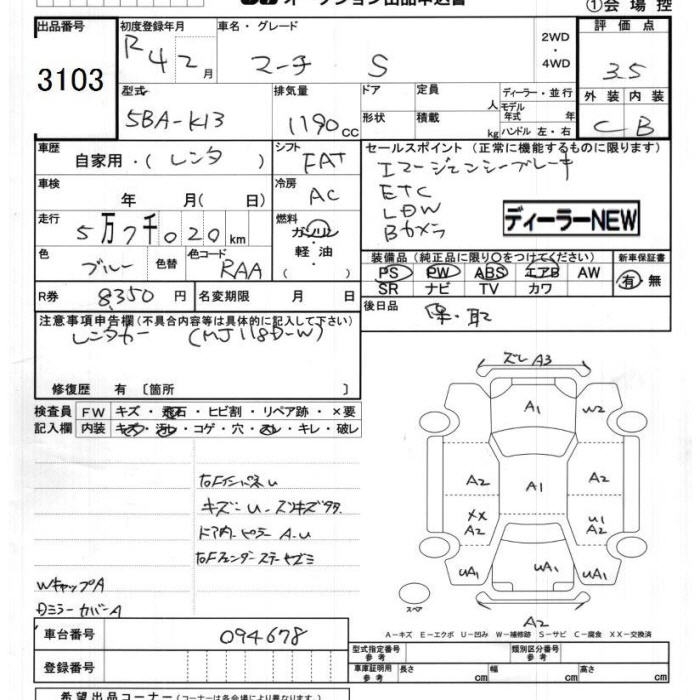 オークション出品申込書
①会場控
出品番号 初度登録年月 車名・グレード 2WD・4WD 評価点
3103
R4 2月 マーチ S 3.5
型式 排気量 ドア 定員 人 ディーラー・並行 外装 内装
5BA-K13 1190cc 形状 積載 kg モデル年式 年 ハンドル 左・右 C B
車歴 自家用・(レンタ) シフト FAT セールスポイント (正常に機能するものに限ります)
エマージェンシーブレーキ
車検 年 月( 日) 冷房 AC ETC
LDW
走行 5万7千020km 燃料 ガソリン 軽油 ( ) Bカメラ
ディーラーNEW
色 ブルー 色替 色コード RAA 装備品 (純正品に限り〇をつけてください) 新車保証書
PS PW ABS エアB AW 有・無
SR ナビ TV カワ
R券 8350円 名変期限 月 日 後日品 保・取
注意事項申告欄 (不具合内容等は具体的に記入して下さい)
レンタカー (MJ118D-W)
修復歴 有 〔箇所 〕
検査員 FW キズ・飛石・ヒビ割・リペア跡・×要
記入欄 内装 キズ・汚レ・コゲ・穴・スレ・キレ・破レ
ズレ A3
A1 W2
A2 A1 A2
XX A2 U1 A2
UA1 UA1 UA1
A2
スペア
キズ
A-U
WキャップA
DミラーカバーA
A-キズ E-エクボ U-凹み W-補修跡 S-サビ C-腐食 XX-交換済
車台番号 094678
型式指定番号 参考 類別区分番号 参考
登録番号
車庫証明用 参考 長さ cm 幅 cm 高さ cm
希望出品コーナー (コーナーは各会場により異なります。)